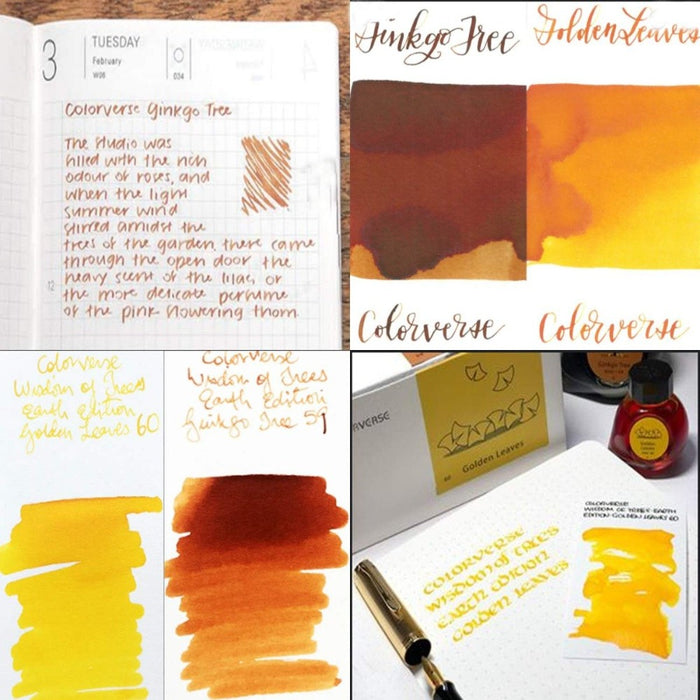 3
TUESDAY
February
W06
034
Colorverse Ginkgo Tree
The studio was
filled with the rich
odour of roses, and
when the light
summer wind
stirred amidst the
trees of the garden, there came
through the open door the
heavy scent of the lilac, or
the more delicate perfume
of the pink-flowering thorn.
12
Ginkgo Tree
Golden Leaves
Colorverse
Colorverse
Colorverse
Wisdom of Trees
Earth edition
Golden Leaves 60
Colorverse
Wisdom of Trees
Earth Edition
Ginkgo Tree 59
RVERSE
60
Golden Leaves
Ginkgo Tree
Golden
Leaves
COLORVERSE
WISDOM OF TREES EARTH
EDITION GOLDEN LEAVES 60
COLORVERSE
WISDOM OF TREES
EARTH EDITION
GOLDEN LEAVES